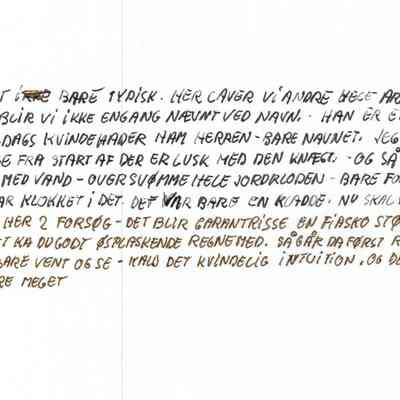 T BARE TYDISK. HER LAVER VI ANDRE HELE AR
BLIR VI IKKE ENGANG NÆVNT VED NAVN. HAN ER E
DAGS KVINDEHADER HAM HERREN - BARE NAVNET. JEG
E FRA START AF DER ER LUSK MED DEN KNÆGT. OG SÅ
MED VAND - OVERSVØMME HELE JORDKLODEN - BARE FO
AR KLOKKET I DET. DET VAR BARE EN KLADDE. NU SKAL
HER 2 FORSØG - DET BLIR GARANTRISSE EN FIASKO STØ
T KA DU GODT ØSPLASKENDE REGNE MED. SÅ GÅR DA FØRST R
BARE VENT OG SE - KALD DET KVINDELIG INTUITION. OG D
RE MEGET